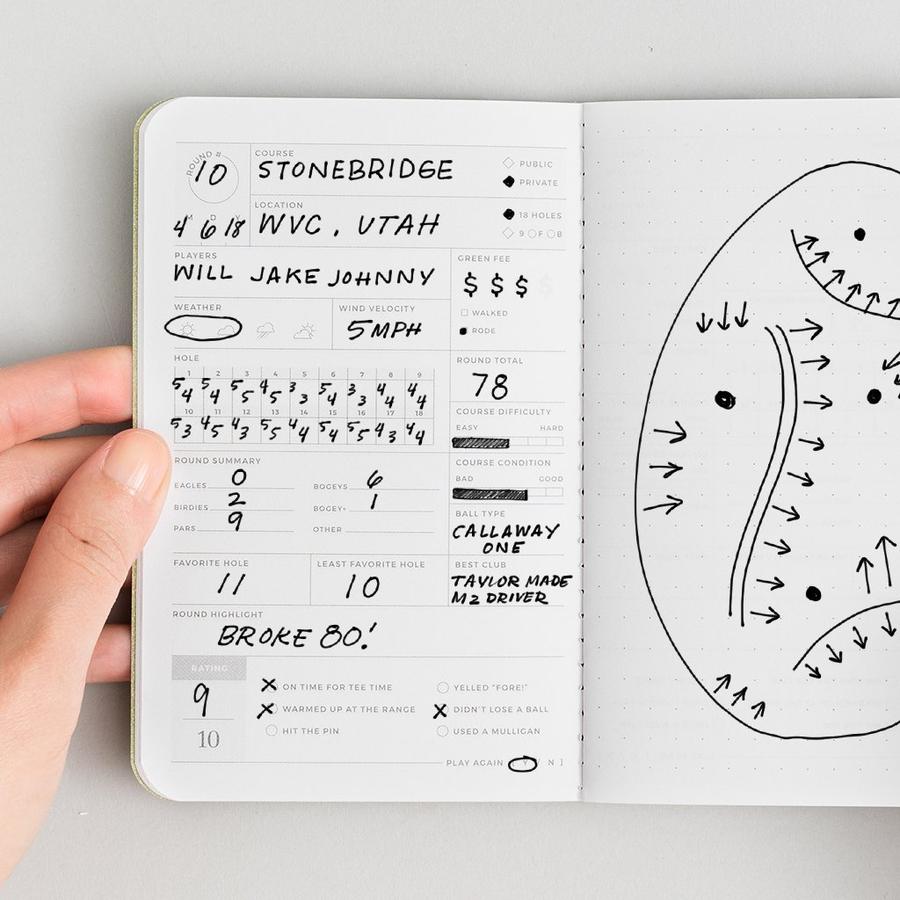 ROUND #
10
COURSE
STONEBRIDGE
PUBLIC
PRIVATE
M D Y
4 6 18
LOCATION
WVC, UTAH
18 HOLES
9 F B
PLAYERS
WILL JAKE JOHNNY
GREEN FEE
$ $ $ $
WEATHER
WIND VELOCITY
5 MPH
WALKED
RODE
HOLE
1 2 3 4 5 6 7 8 9
5 4 5 4 3 5 4 5 3 3 5 4 3 3 4 4 4 4
10 11 12 13 14 15 16 17 18
5 3 4 5 4 3 5 5 4 4 5 4 5 5 4 3 4 4
ROUND TOTAL
78
COURSE DIFFICULTY
EASY HARD
ROUND SUMMARY
EAGLES 0 BOGEYS 6
BIRDIES 2 BOGEY+ 1
PARS 9 OTHER
COURSE CONDITION
BAD GOOD
BALL TYPE
CALLAWAY
ONE
FAVORITE HOLE
11
LEAST FAVORITE HOLE
10
BEST CLUB
TAYLOR MADE
M2 DRIVER
ROUND HIGHLIGHT
BROKE 80!
RATING
9
10
X ON TIME FOR TEE TIME YELLED "FORE!"
X WARMED UP AT THE RANGE X DIDN'T LOSE A BALL
HIT THE PIN USED A MULLIGAN
PLAY AGAIN [ Y / N ]